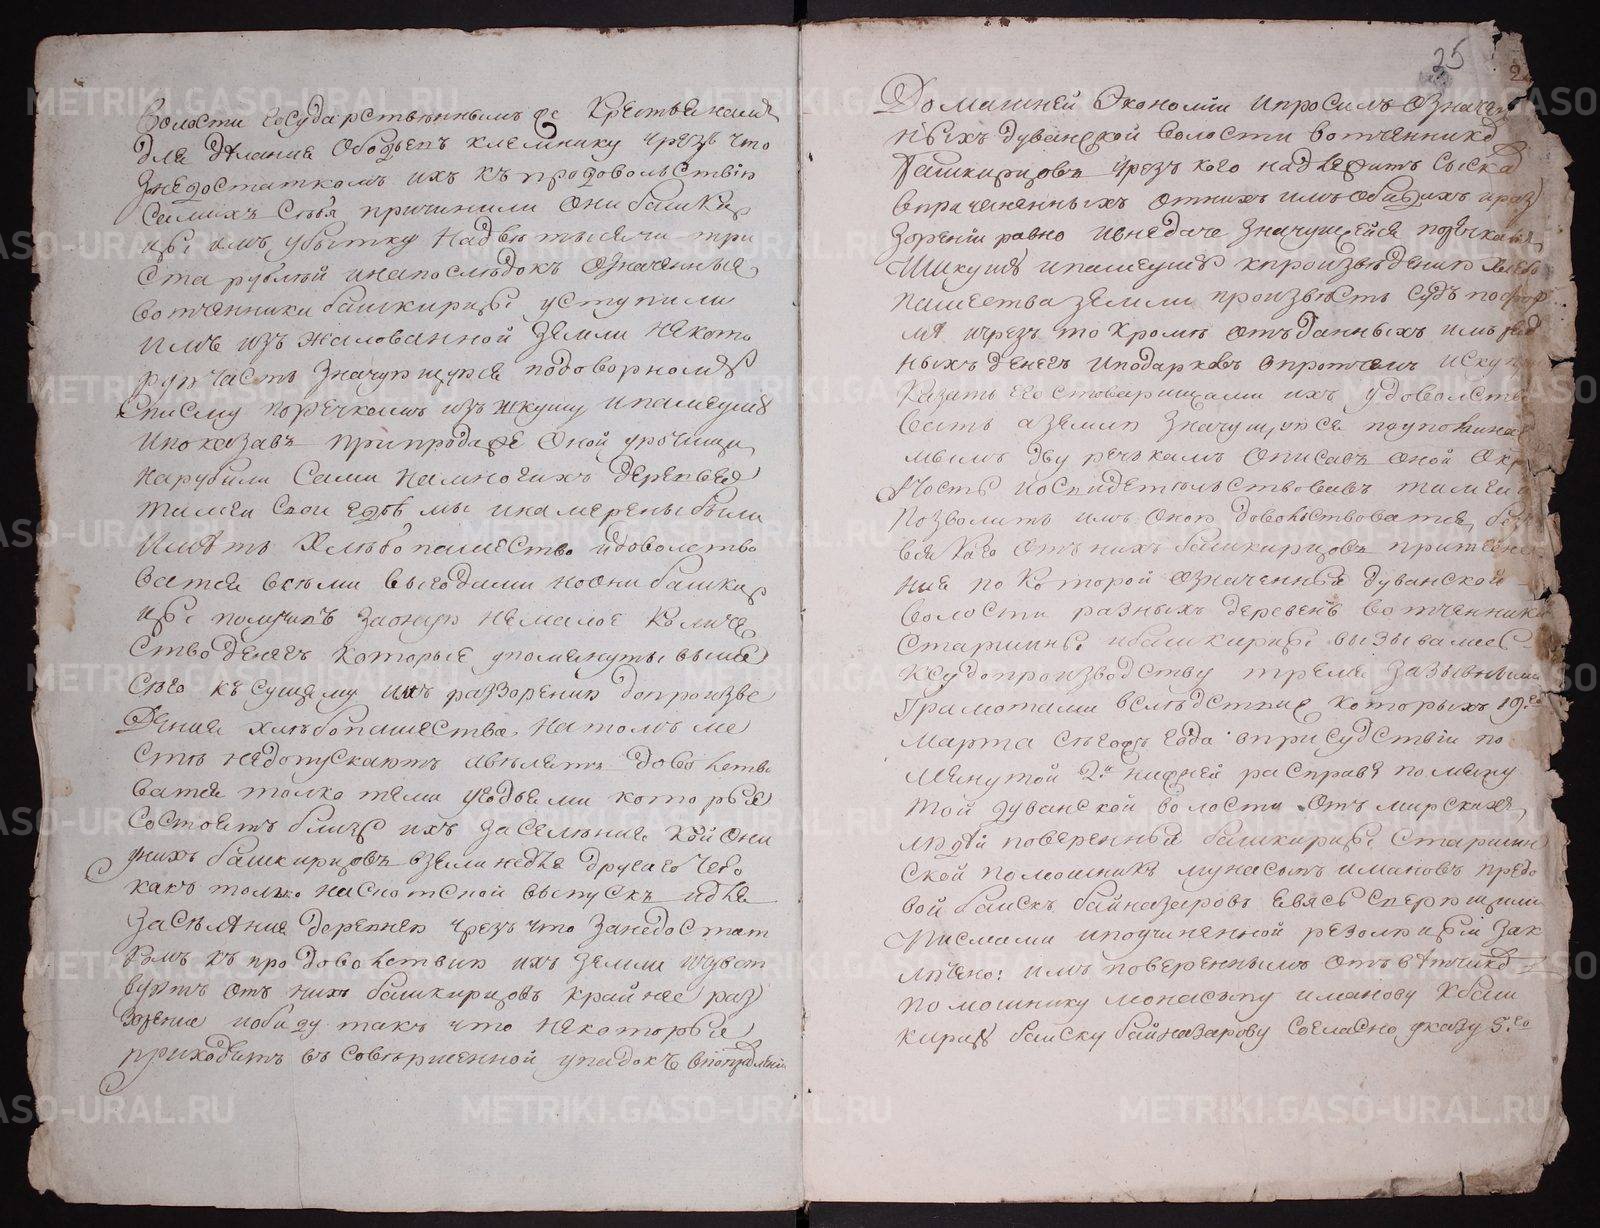 волости государственнымъ же крестьянамъ
для деланиа обо
знедостаткомъ ихъ къ продовольствию
самихъ себя причинили они башкир
цы имъ убытку надве тысячи три
ста рублей инапоследокъ означенныя
вотченники башкирцы уступили
имъ изъ жалованной земли некото
рую часть значущуюся подоворному
писму поречкамъ изъ икушу ипамешу
ипоказавъ припродаже оной урочищи
нарубили сами намногихъ деревьяхъ
тамги свои где бъ мы инамерены были
иметь хлебопашество идоволство
ватся всеми выгодами ноони башкир
цы получивъ заоную немалое количе
ство денегъ которые упомянуты выше
сего къ сущему ихъ разорению допроизве
дения хлебопашества натомъ ме
сте недопускаютъ авелятъ доволство
ватся толко теми угодьями которыя
состоятъ близъ ихъ заселения кои они
унихъ башкирцовъ взели недля другаго чего
какъ только наскотской выпускъ идля
заселения деревнею чрезъ что занедостат
комъ къ продоволствию ихъ земли чувст
вуютъ отъ нихъ башкирцовъ крайнее раз
зорение иобиду такъ что некоторыя
приходятъ въ совершенной упадокъ
25
Домашней экономии ипросилъ означен
ныхъ дуванской волости вотченников
башкирцовъ чрезъ кого надлежитъ сыска
впричиненныхъ отнихъ имъ обидахъ ираз
зорении равно инедаче значущейся поречкамъ
Шикушъ ипамешъ кпроизведению хлебо
пашества земли произвесть судъ пофор
ме ичрезъ то кроме отъданныхъ имъ
ныхъ денегъ иподарковъ впротчемъ иску
казать его стоварищами ихъ удоволство
вать аземлю значущуюся поупоминае
мымъ дву речкамъ описавъ оной окр
ность иосвидетельствовавъ тамги
позволить имъ оною доволствоватся безъ
всякаго отъ нихъ башкирцовъ притесне
ние по которой означенныя дуванской
волости разныхъ деревень вотченники
старшины ибашкирцы вызывались
ксудопроизводству тремя зазывными
грамотами вследствие которыхъ 19го
марта сегожъ года вприсудствии по
мянутой 2й нижней расправы помяну
той дуванской волости отъ мирскихъ
людей поверенныя башкирцы старшин
ской помошникъ мунасыпъ имановъ прядо
вой баискъ байназаровъ явясь сверющими
писмами ипоучиненной резолюцыи зак
лючено: имъ повереннымъ отъветчикамъ
помошнику монасыпу иманову ибаш
кирцу баиску байназарову согласно указу 5го